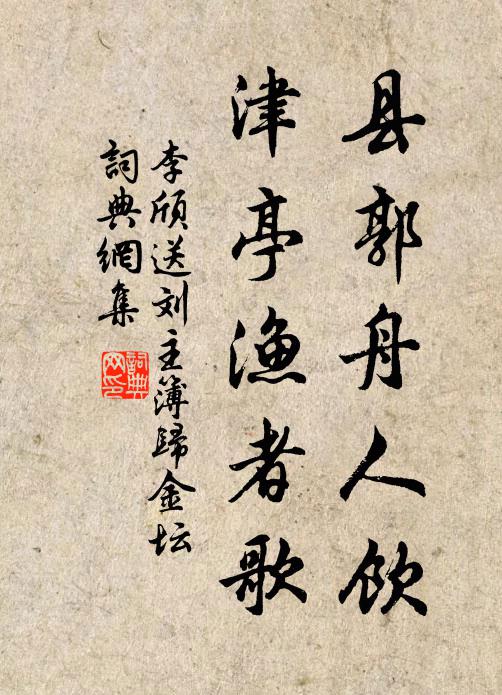 县郭舟人饮
津亭渔者歌
李颀送刘主簿歸金坛
詞典網集
詞典网印